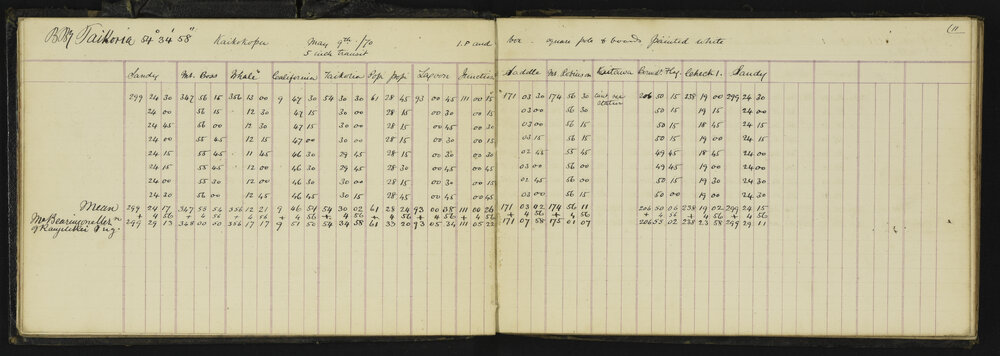 Taikoria 54° 34' 58" Kaikokopu May 9th /70 I.P. and box - square pole & boards painted white (11
5 inch Transit
Sandy Mt. Boss Whale Californian Taikoria Pop Lagoon Junction Saddle Mt. Robinson Check 1. Sandy
299 24 30 347 56 15 356 13 00 9 47 30 54 30 30 61 28 45 93 00 45 111 00 15 171 03 30 174 56 30 cant see 206 50 15 238 19 00 299 24 30
station
24 00 56 00 12 30 47 15 30 00 28 15 00 30 00 30 03 00 56 30 50 15 19 15 24 00
24 45 56 00 12 30 47 15 30 00 28 15 00 45 00 30 03 00 56 15 50 15 18 45 24 15
24 00 55 45 12 15 47 00 30 00 28 15 00 30 00 15 03 15 56 15 50 15 19 00 24 30
24 15 55 45 11 45 46 30 29 45 28 15 00 30 00 30 02 44 55 45 49 45 18 45 24 00
24 15 55 45 12 00 46 30 29 45 28 15 00 45 00 45 03 00 56 00 49 45 19 00 24 15
24 00 55 30 12 00 46 45 30 00 28 30 00 45 00 02 45 56 00 50 15 19 30 24 30
24 30 56 00 12 45 46 45 30 15 28 45 00 45 00 03 00 56 15 50 00 19 00 24 00
Mean 299 24 17 347 55 56 356 12 21 9 46 54 54 30 02 61 28 24 93 00 38 111 00 26 171 03 02 174 56 11 206 50 06 238 19 02 299 24 15
+ 4 56 + 4 56 + 4 56 + 4 56 + 4 56 + 4 56 + 4 56 + 4 56 + 4 56 + 4 56 + 4 56 + 4 56
of Rangitikei 299 29 13 348 00 50 356 17 17 9 51 50 54 34 58 61 33 20 93 05 34 111 05 22 171 07 58 175 01 07 206 55 02 238 23 58 299 29 11